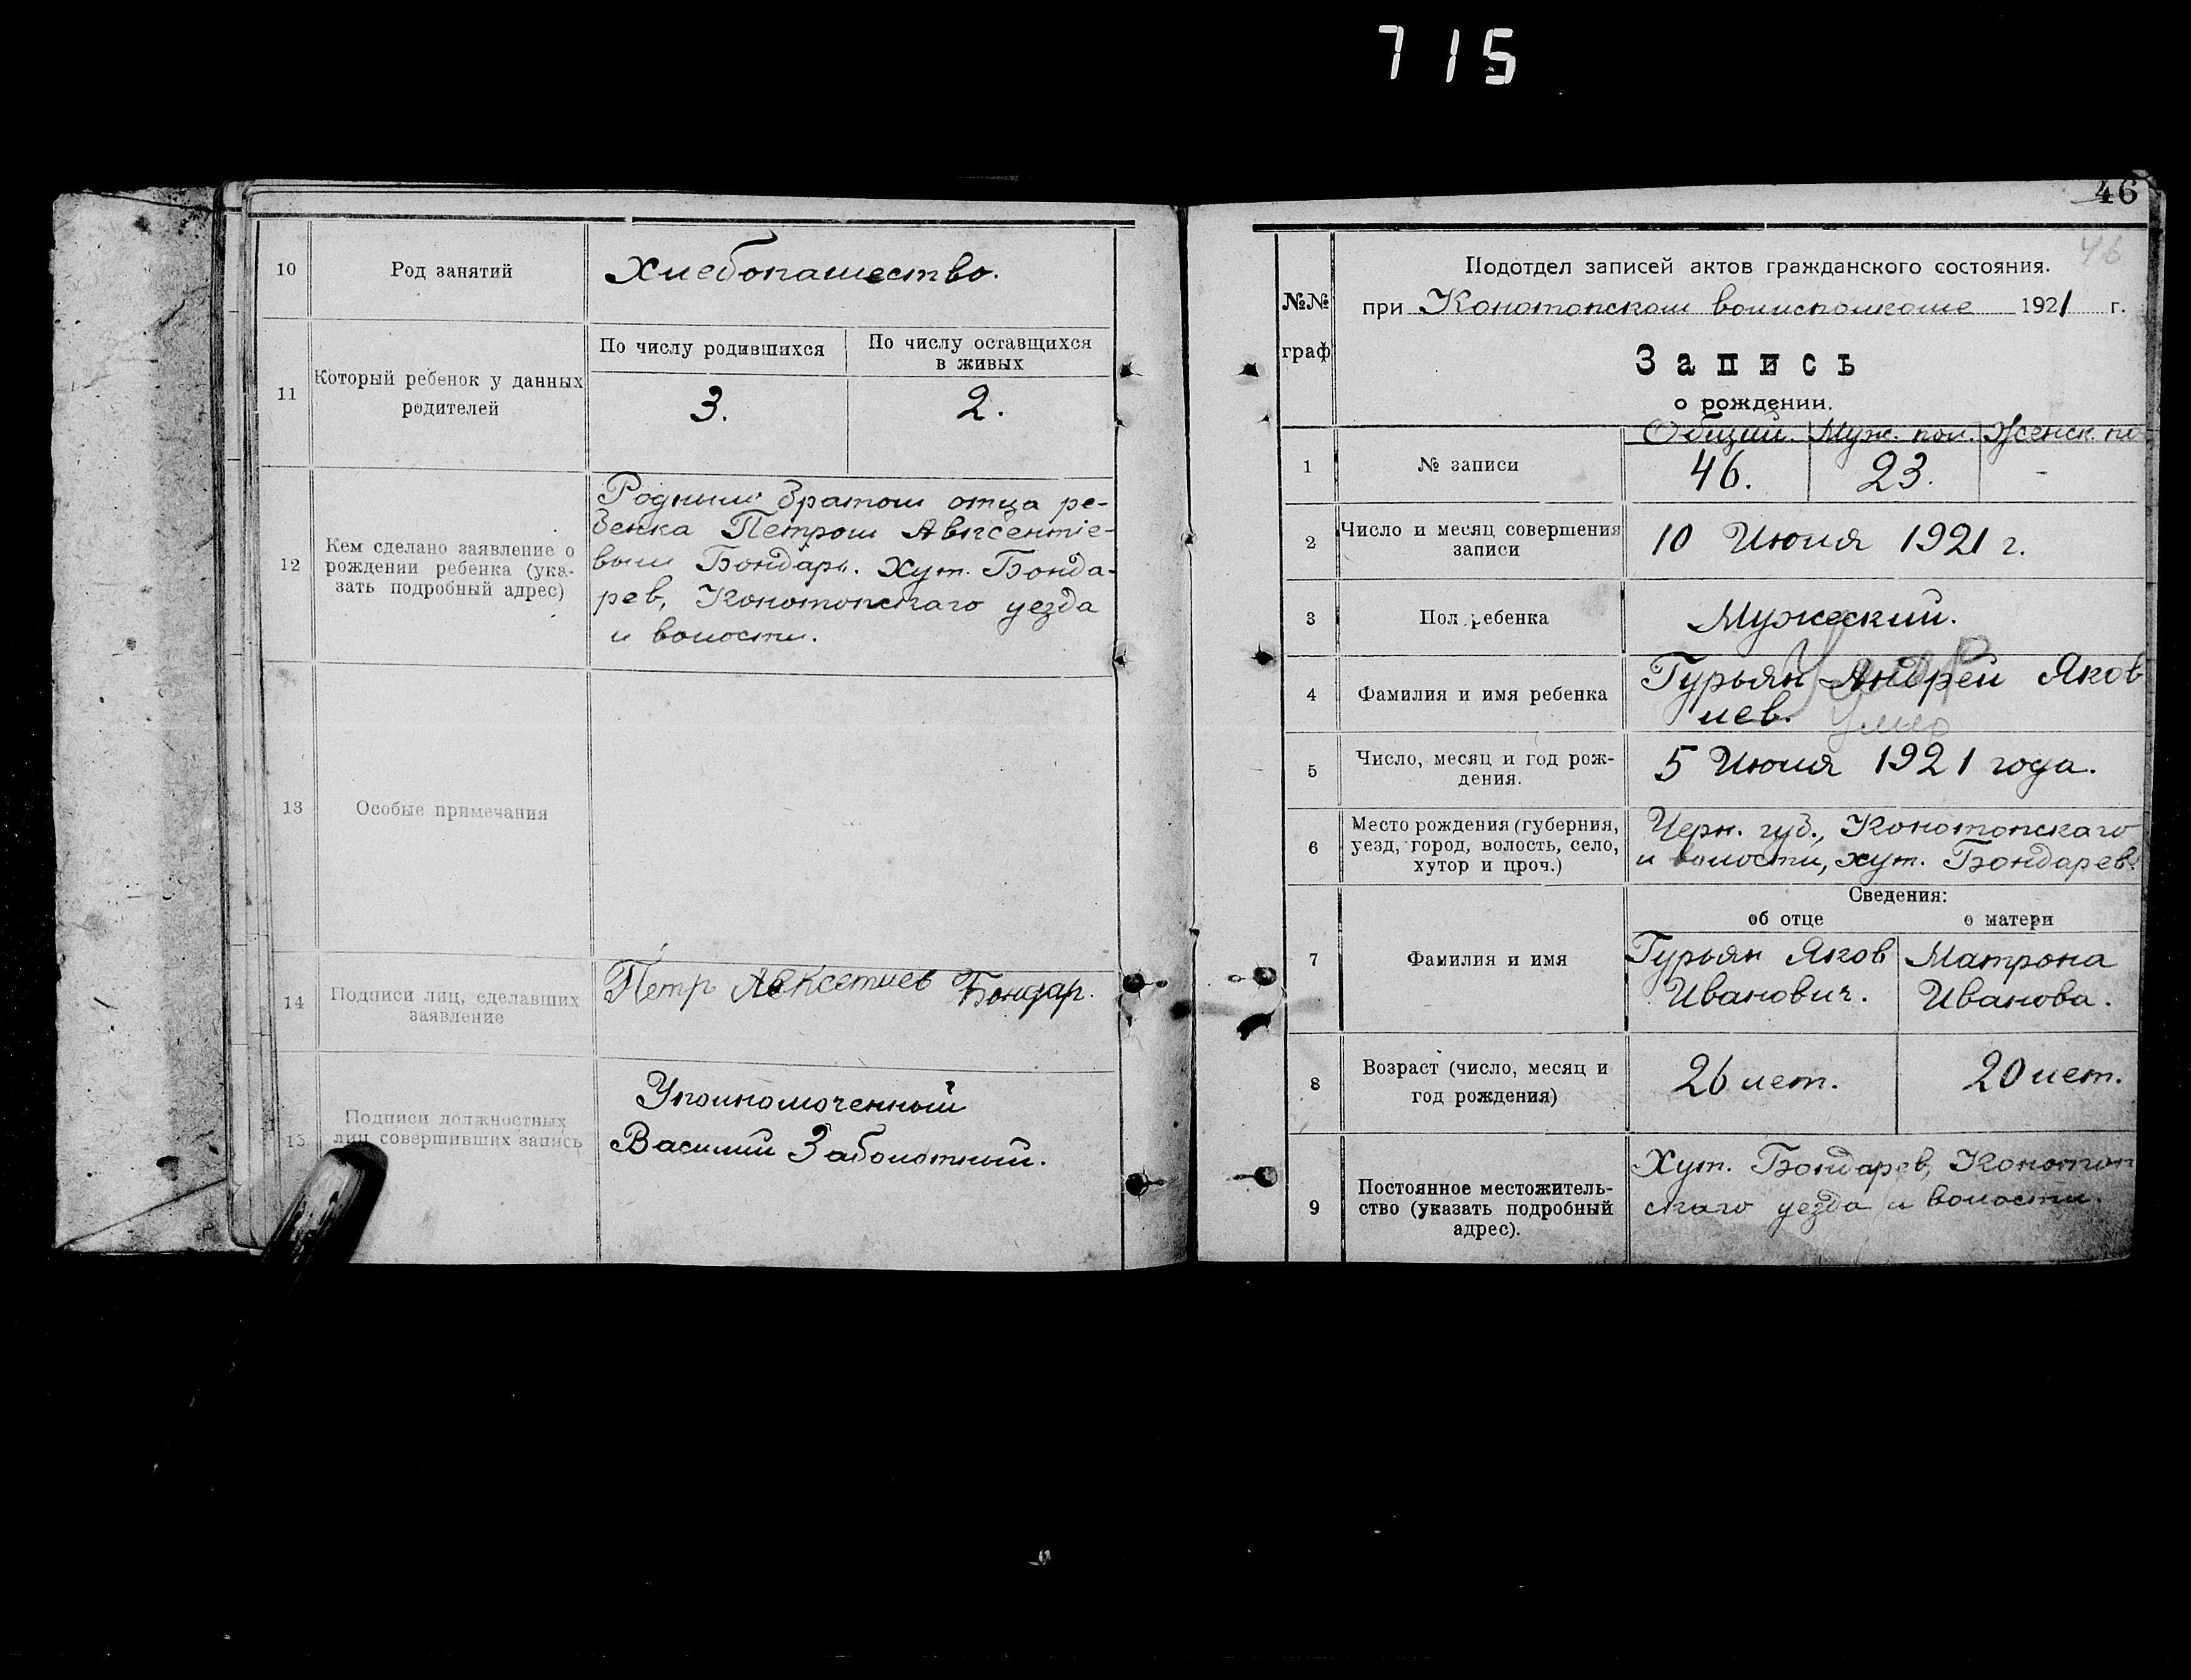 715
10
Род занятий
Хлебопашество.
11
Который ребенок у данных
родителей
По числу родившихся
По числу оставщихся
в живых
3.
2.
12
Кем сделано заявление о
рождении ребенка (ука-
зать подробный адрес)
Родным братом отца ре-
бенка Петром Авксентіе-
вым Бондарь. Хут. Бонда-
рев, Конотопскаго уезда
и волости.
13
Особые примечания
14
Подписи лиц, сделавших
заявление
Петр Авксетиев Бондар.
15
Подписи должностных
лиц совершивших запись
Уполномоченный
Василий Заболотный.
46
46
№№
граф
Подотдел записей актов гражданского состояния.
при Конотопском волисполкоме 1921 г.
Запись
о рождении.
Общий. Муж. пол. Женск. по
1
№ записи
46.
23.
-
2
Число и месяц совершения
записи
10 Июля 1921 г.
3
Пол ребенка
Мужеский.
4
Фамилия и имя ребенка
Гурьян Андрей Яков
лев.
Умер
5
Число, месяц и год рож-
дения.
5 Июля 1921 года.
6
Место рождения (губерния,
уезд, город, волость, село,
хутор и проч.)
Черн. губ., Конотопскаго
и волости, хут. Бондарев.
Сведения:
об отце
о матери
7
Фамилия и имя
Гурьян Яков
Иванович.
Матрона
Иванова.
8
Возраст (число, месяц и
год рождения)
26 лет.
20 лет.
9
Постоянное местожитель-
ство (указать подробный
адрес).
Хут. Бондарев, Конотоп
скаго уезда и волости.